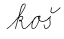 koš